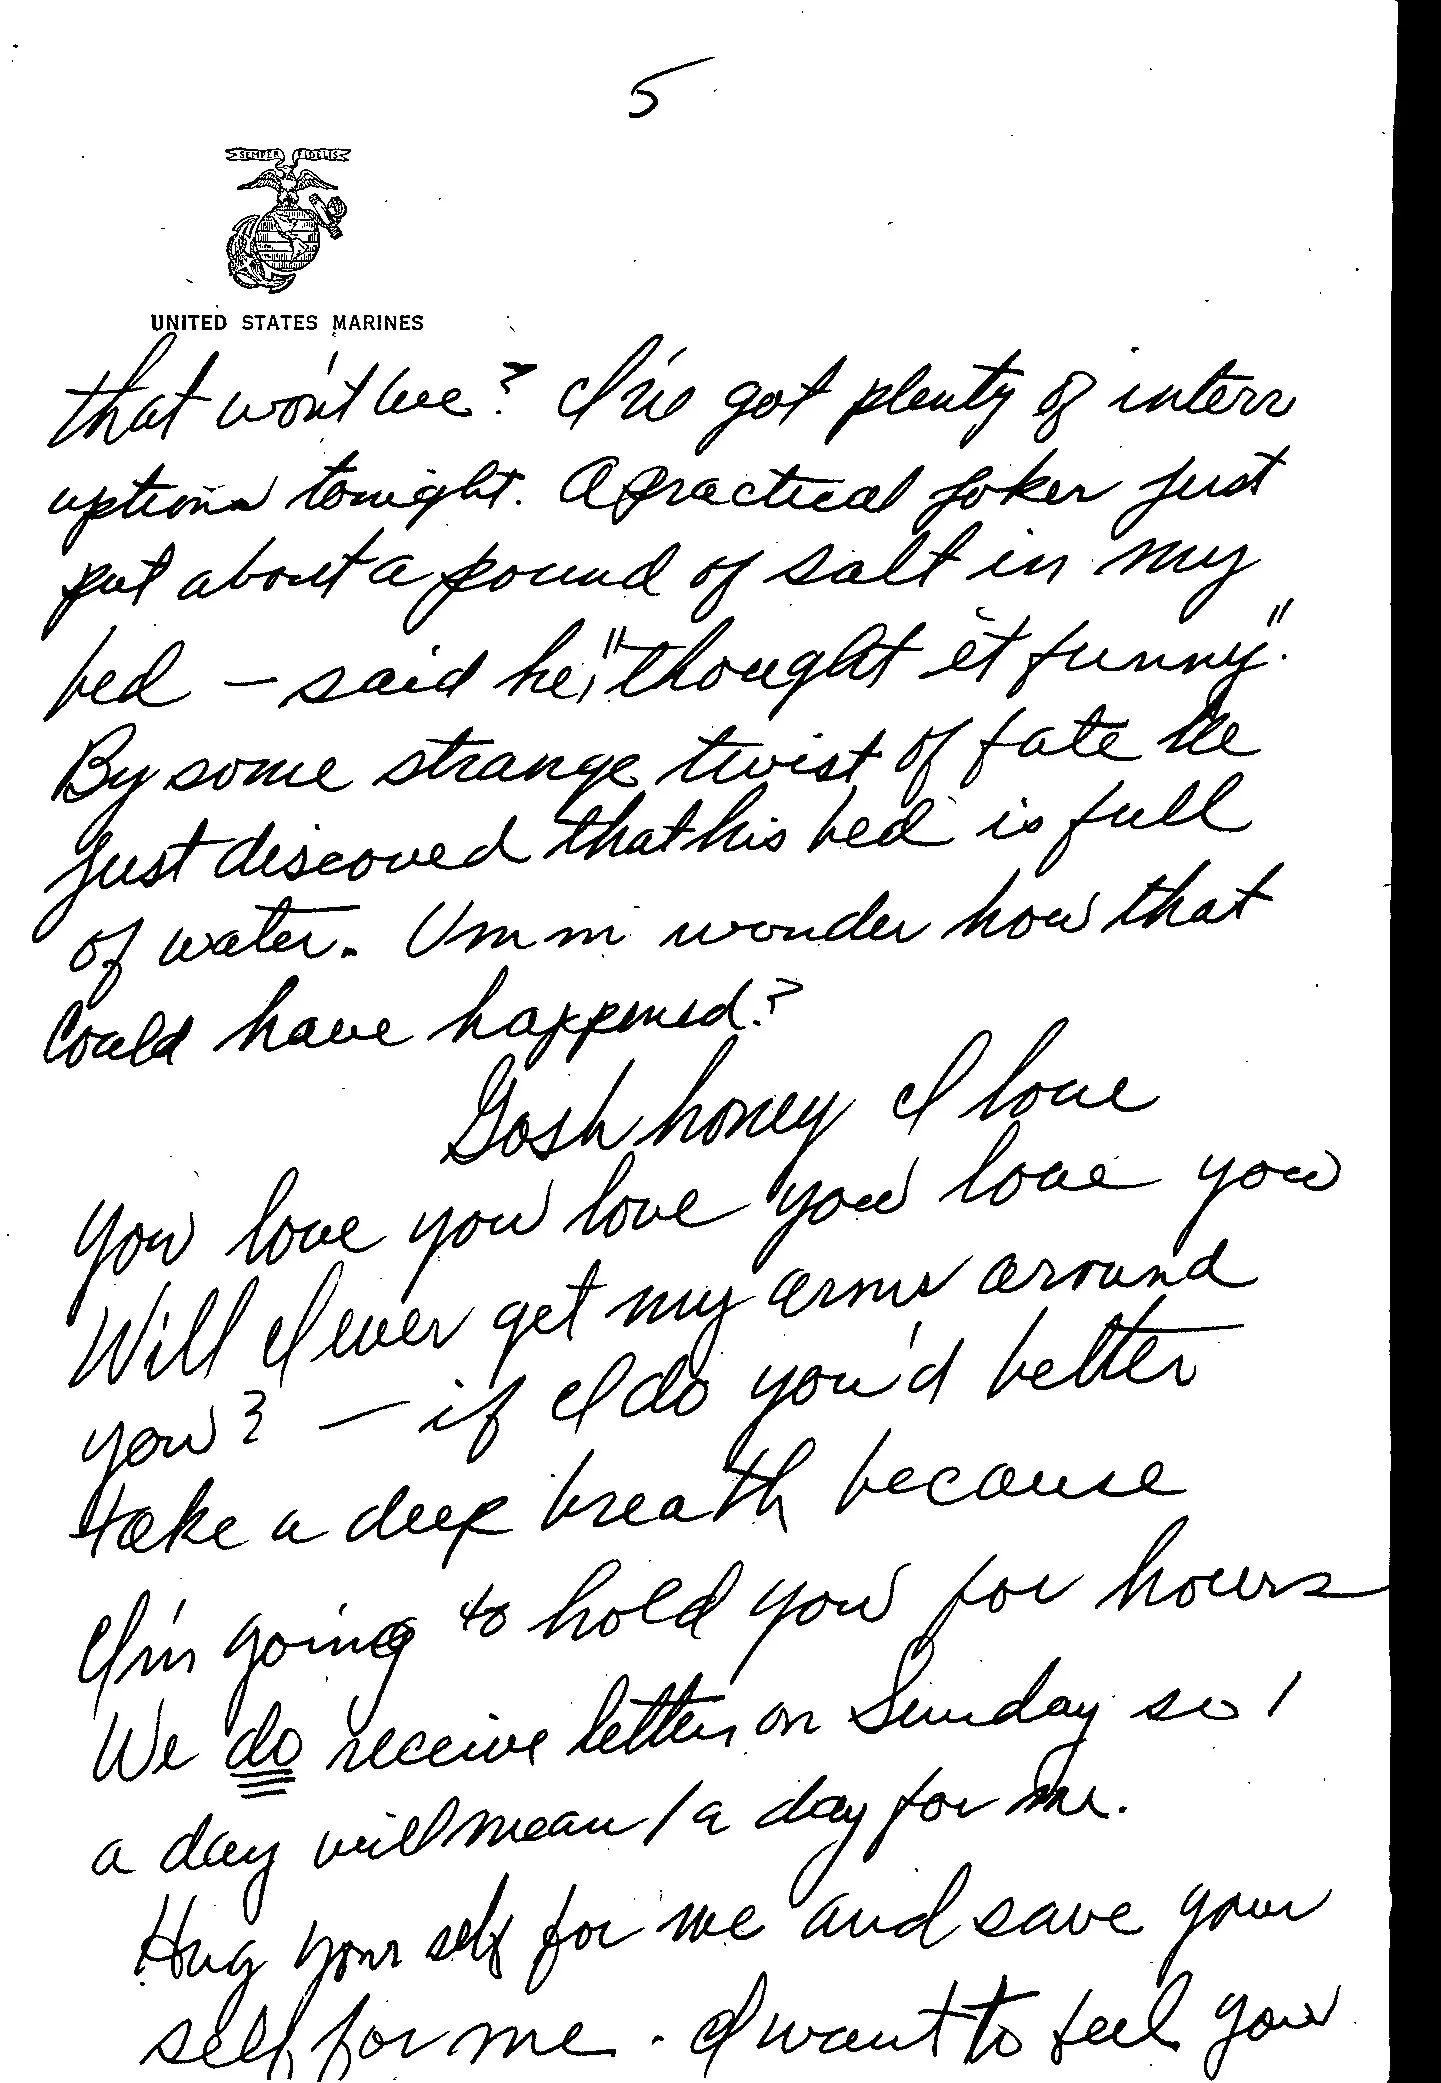 5
SEMPER FIDELIS
UNITED STATES MARINES
that won't we? I've got plenty of interr
uptions tonight. A practical joker just
put about a pound of salt in my
bed – said he, "thought it funny".
By some strange twist of fate he
just discoved that his bed is full
of water. Umm wonder how that
could have happened?
Gosh honey I love
you love you love you love you
Will I ever get my arms around
you? – if I do you'd better
take a deep breath because
I'm going to hold you for hours
We do receive letters on Sunday so 1
a day will mean 1 a day for me.
Hug your self for me and save your
self for me. I want to feel your